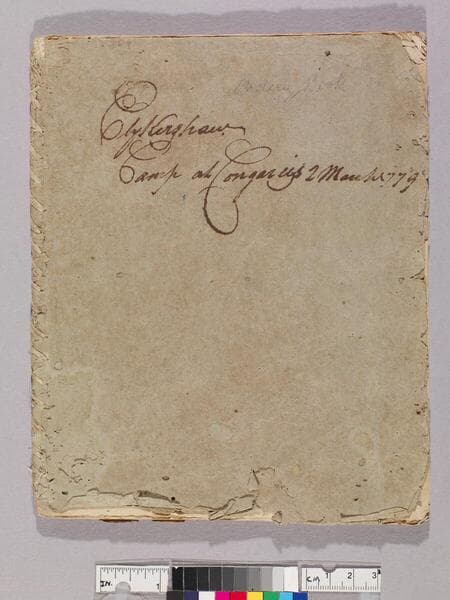 Order Book
Ely Kershaw
Camp at Congarees 2 March 1779
IN. 1
CM 1 2 3